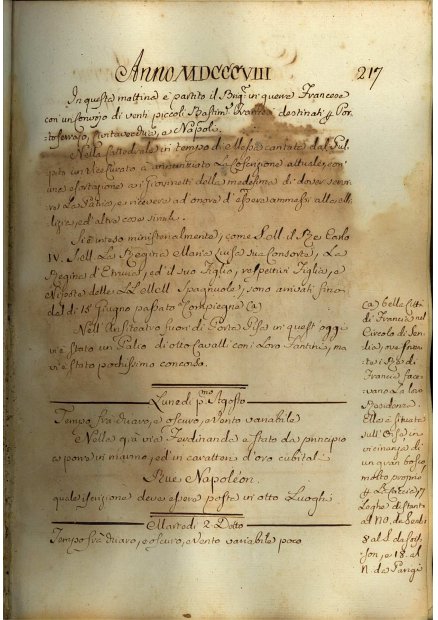 Anno MDCCCVIII
217
In questa mattina è partito il Brig.^n in guerra Francese
con un convojo di venti piccoli Bastim.^ti Francesi destinati p Por-
toferrajo, Civitavecchia, e Napoli.
Nella Cattedrale in tempo di Messa cantata dal Pul-
pito un è annunziato La Coscrizione attuale, con
una esortazione ai Giovinetti della medesima di dover servi-
re La Patria, e ricevere ad onore d'essere ammessi alla mi-
lizia, ed altre cose simili.
Si è inteso ministerialmente, come S. M. il Rè Carlo
IV. S. M. La Regina Maria Luisa sua Consorte, La
Regina d'Etruria, ed il suo Figlio, respettivi Figlia, e
Nipote delle LL. MM. Spagnuole, sono arrivati fino
dal dì 18 Giugno passato Compiegne (a)
Nell' Anfiteatro fuori di Porta Pisa in quest' oggi
vi è stato un Palio di otto Cavalli con i Loro Fantini, ma
vi è stato pochissimo concorso.
(a) bella Città
di Francia nel
Circolo di Sen-
lis, ove
i Rè di
Francia face-
vano La loro
Residenza.
Ella è situata
sull' Oise in
vicinanza di
un gran bosco
molto proprio
p La Caccia, 7
Leghe distante
al NO. da Senlis
8 al L da Sois-
son, e 18 al
N. da Parigi
Lunedì p.^mo Agosto
Tempo frà chiaro, e oscuro, e Vento variabile
È Nella già via Ferdinanda è stato da principio
a porre in marmo, ed in caratteri d'oro cubitali
Rue Napoléon.
quale iscrizione deve essere posta in otto Luoghi
Martedì 2 Detto
Tempo frà chiaro, e oscuro, e Vento variabile poco